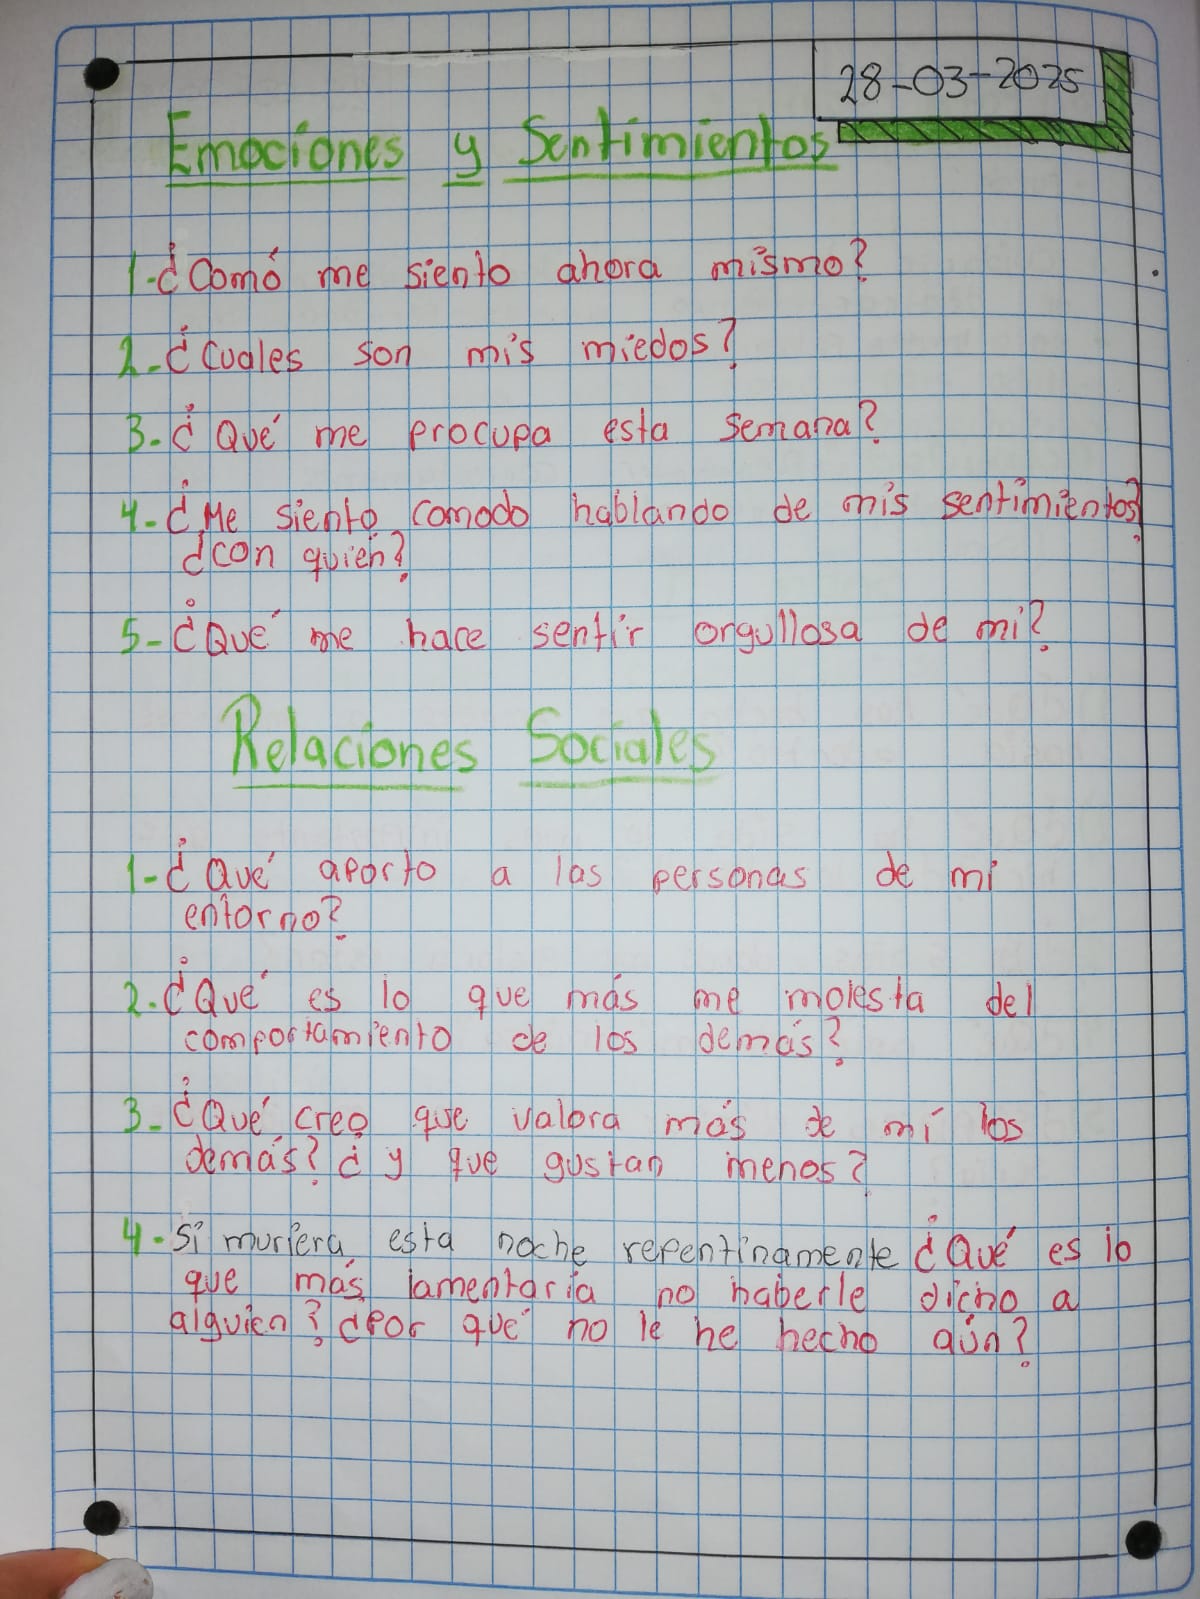 28-03-2025
Emociones y Sentimientos
1-¿Comó me siento ahora mismo?
2-¿Cuales son mis miedos?
3-¿Qué me procupa esta semana?
4-¿Me siento comodo hablando de mis sentimientos?
¿con quien?
5-¿Qué me hace sentir orgullosa de mi?
Relaciones Sociales
1-¿Qué aporto a las personas de mi
entorno?
2-¿Qué es lo que más me molesta del
comportamiento de los demás?
3-¿Qué creo que valora más de mí los
demás? ¿y que gustan menos?
4-Si muriera esta noche repentinamente ¿Qué es lo
que más lamentaría no haberle dicho a
alguien? ¿Por qué no le he hecho aún?